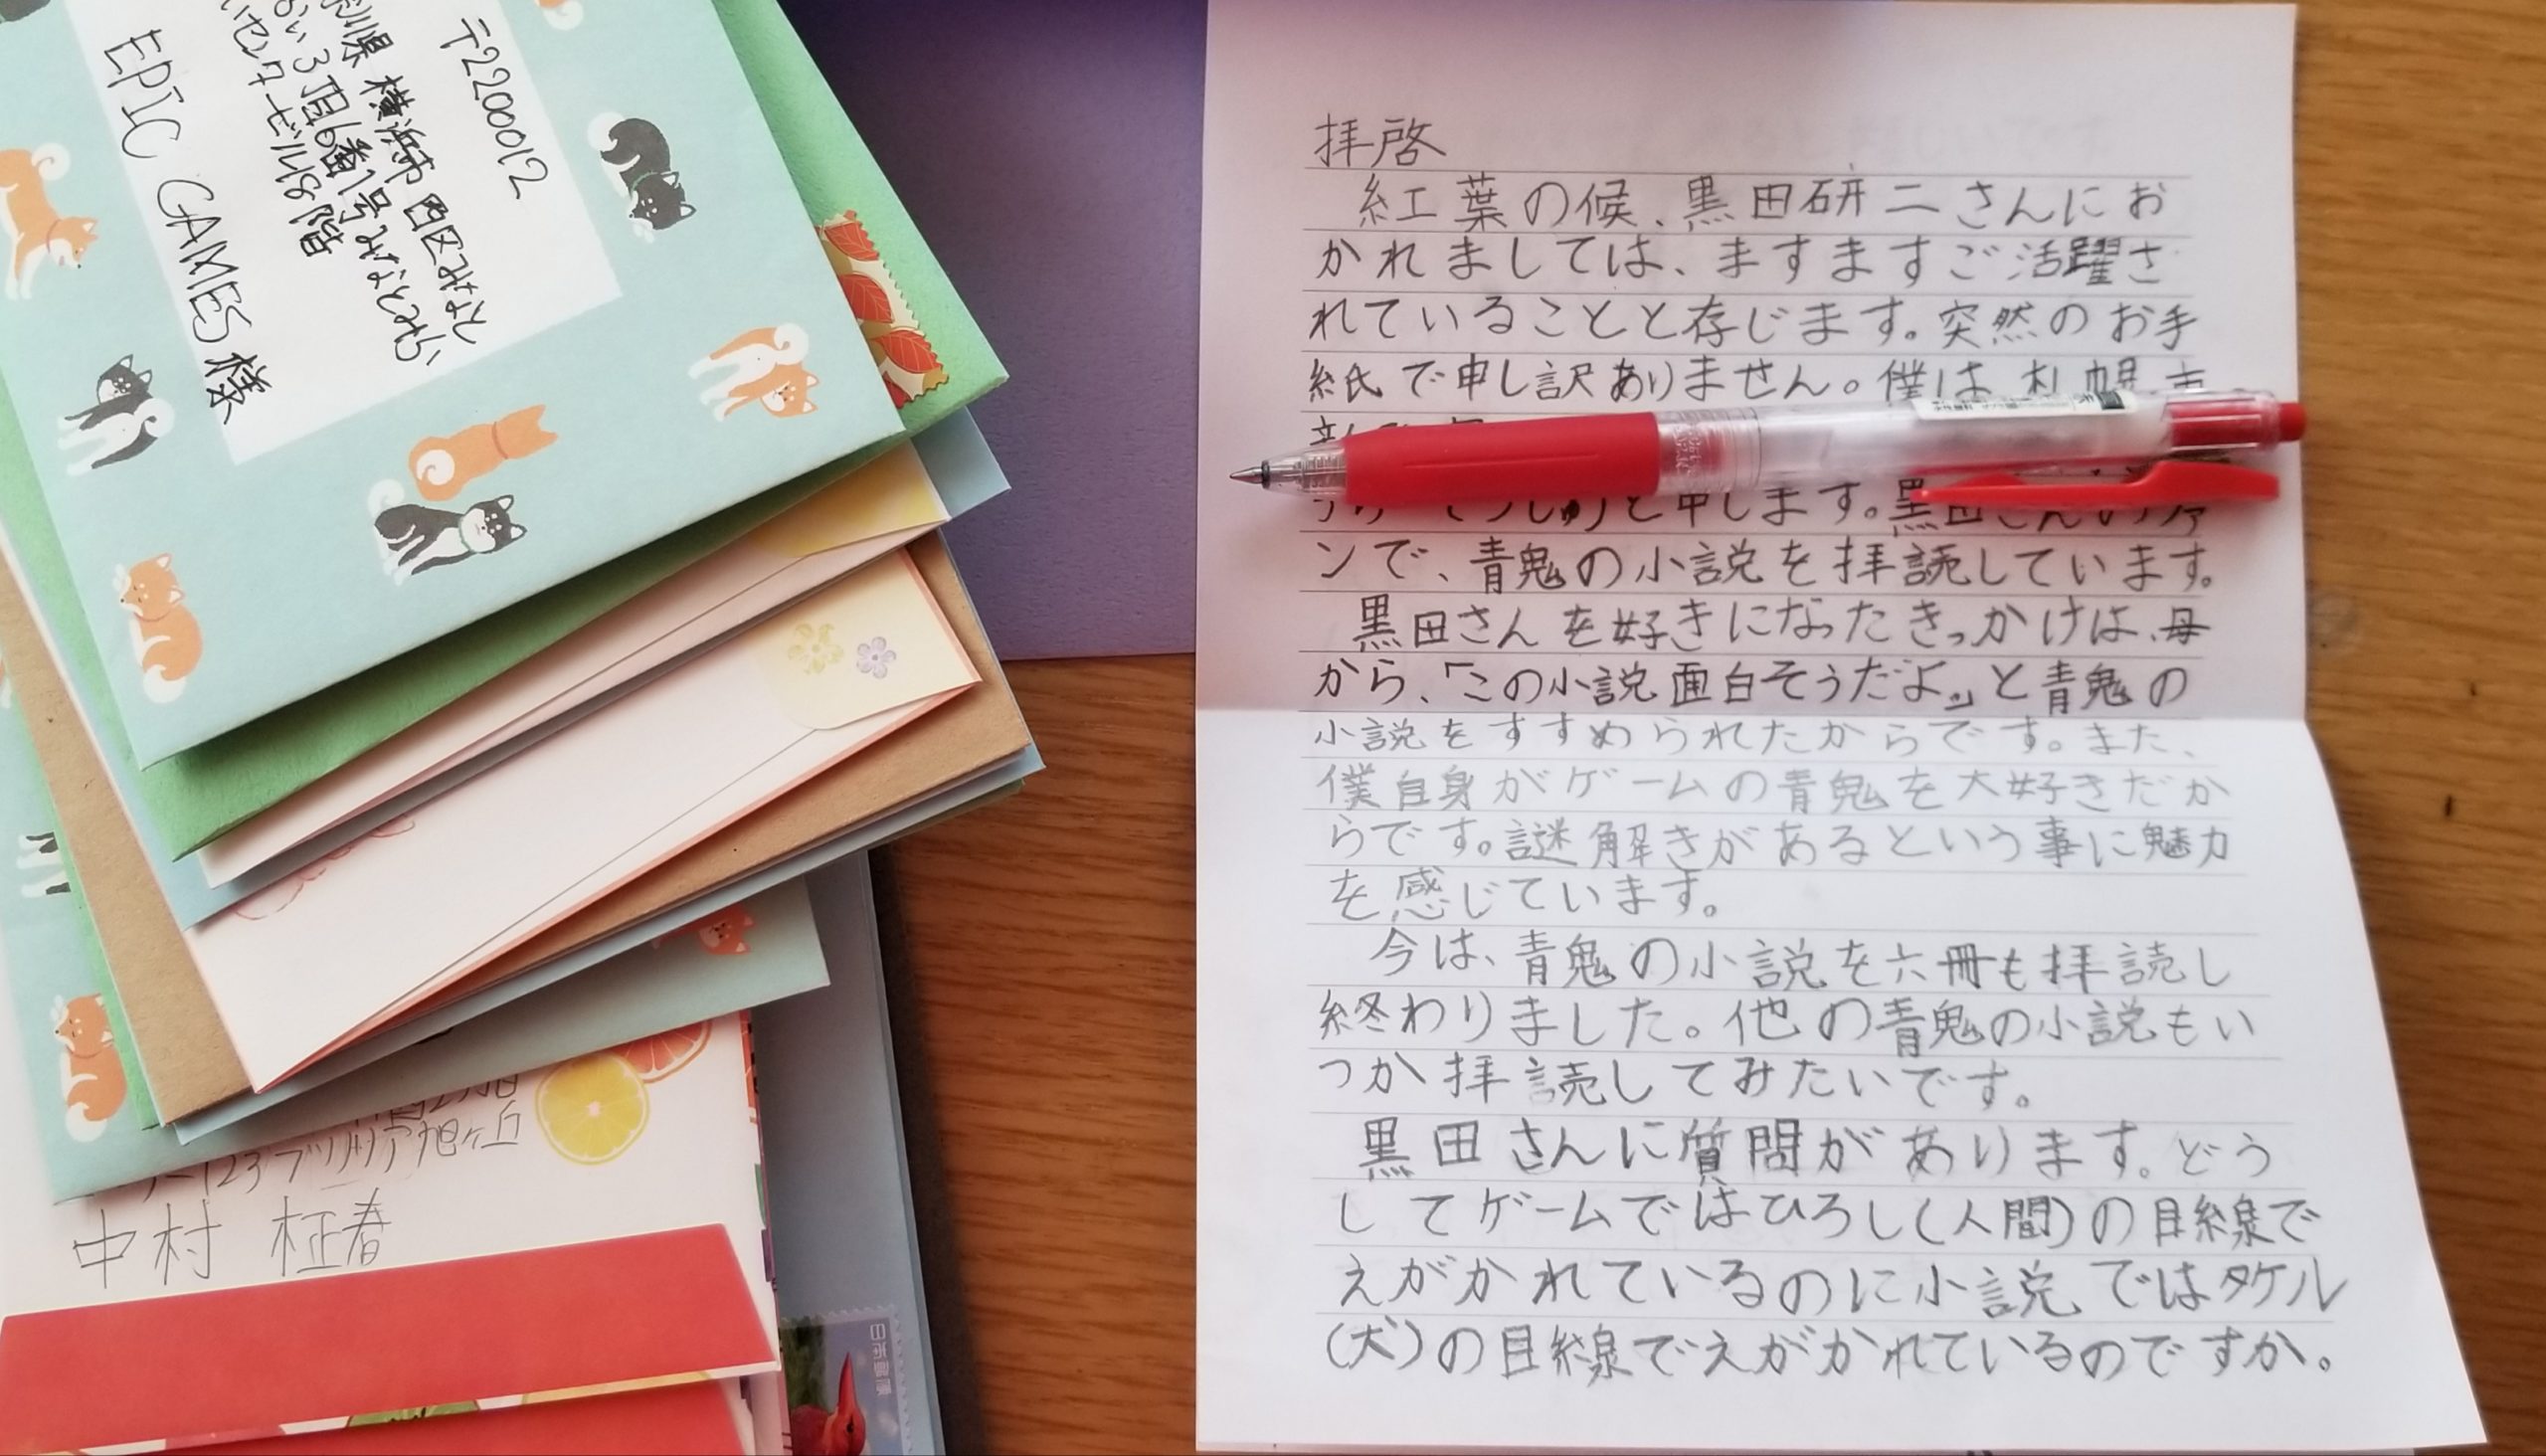 〒2200012
横浜市 西区みなと
3丁目6番1号みなとみら
いセンタービル18階
EPIC GAMES 様
中村 柾春
日本郵便
拝啓
紅葉の候、黒田研二さんにお
かれましては、ますますご活躍さ
れていることと存じます。突然のお手
紙で申し訳ありません。僕は札幌市
と申します。黒田さんのファ
ンで、青鬼の小説を拝読しています。
黒田さんを好きになったきっかけは、母
から、「この小説面白そうだよ。」と青鬼の
小説をすすめられたからです。また、
僕自身がゲームの青鬼を大好きだか
らです。謎解きがあるという事に魅力
を感じています。
今は、青鬼の小説を六冊も拝読し
終わりました。他の青鬼の小説もい
つか拝読してみたいです。
黒田さんに質問があります。どう
してゲームではひろし(人間)の目線で
えがかれているのに小説ではタケル
(犬)の目線でえがかれているのですか。